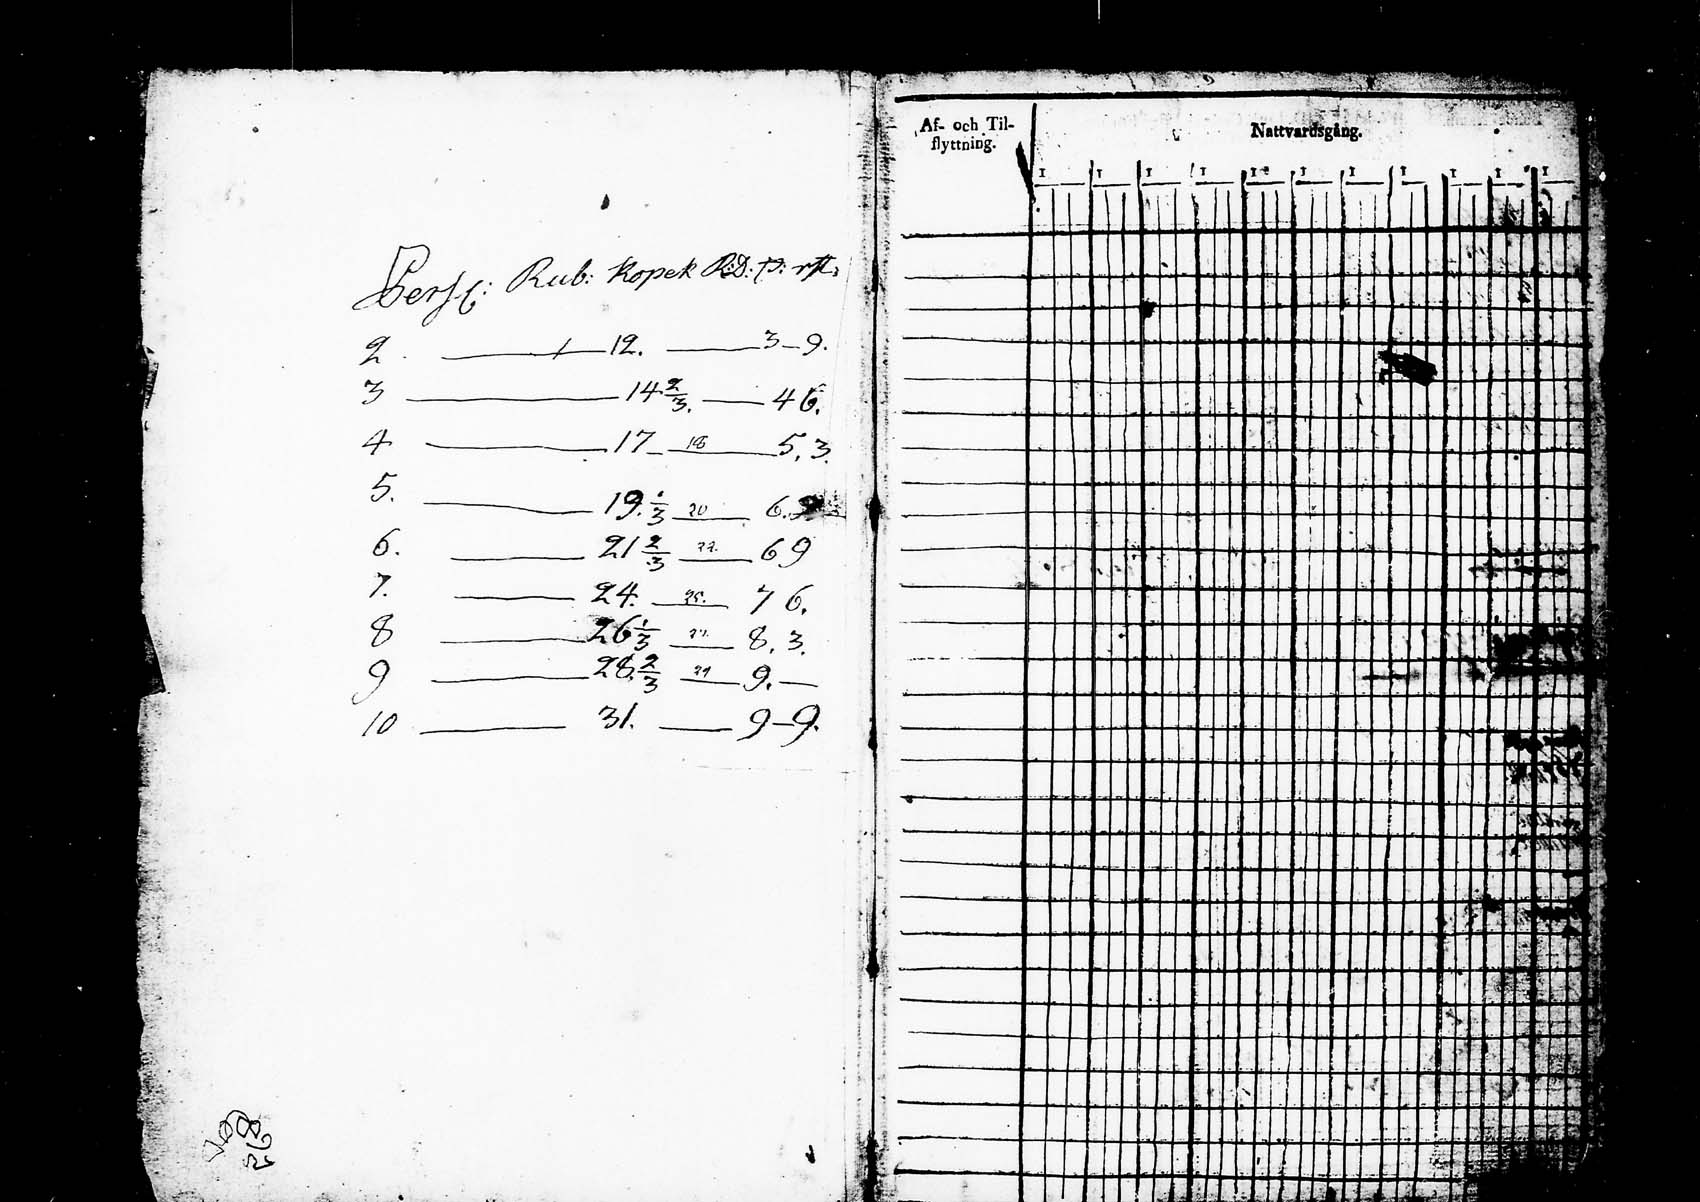 Pers: Rub: Kopek R:D: ß: rst:
2. — 12. — 3 – 9.
3 — 14 2/3. — 4 6.
4 — 17 — 18 — 5. 3.
5. — 19. 1/3 — 20 — 6.
6. — 21 2/3 — 22. — 6 9
7. — 24. — 25. — 7 6.
8 — 26 1/3 — 27. — 8. 3.
9 — 28. 2/3 — 29 — 9. —
10 — 31. — 9 – 9.
Af- och Til-
flyttning.
Nattvardsgång.
I I I I I I I I I I I